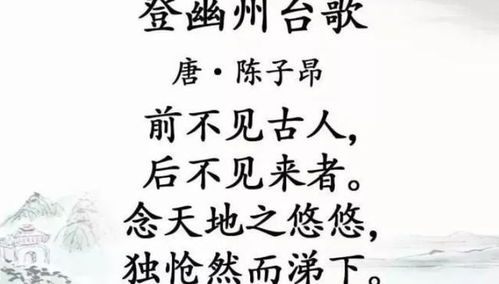 登幽州台歌
唐·陈子昂
前不见古人，
后不见来者。
念天地之悠悠，
独怆然而涕下。